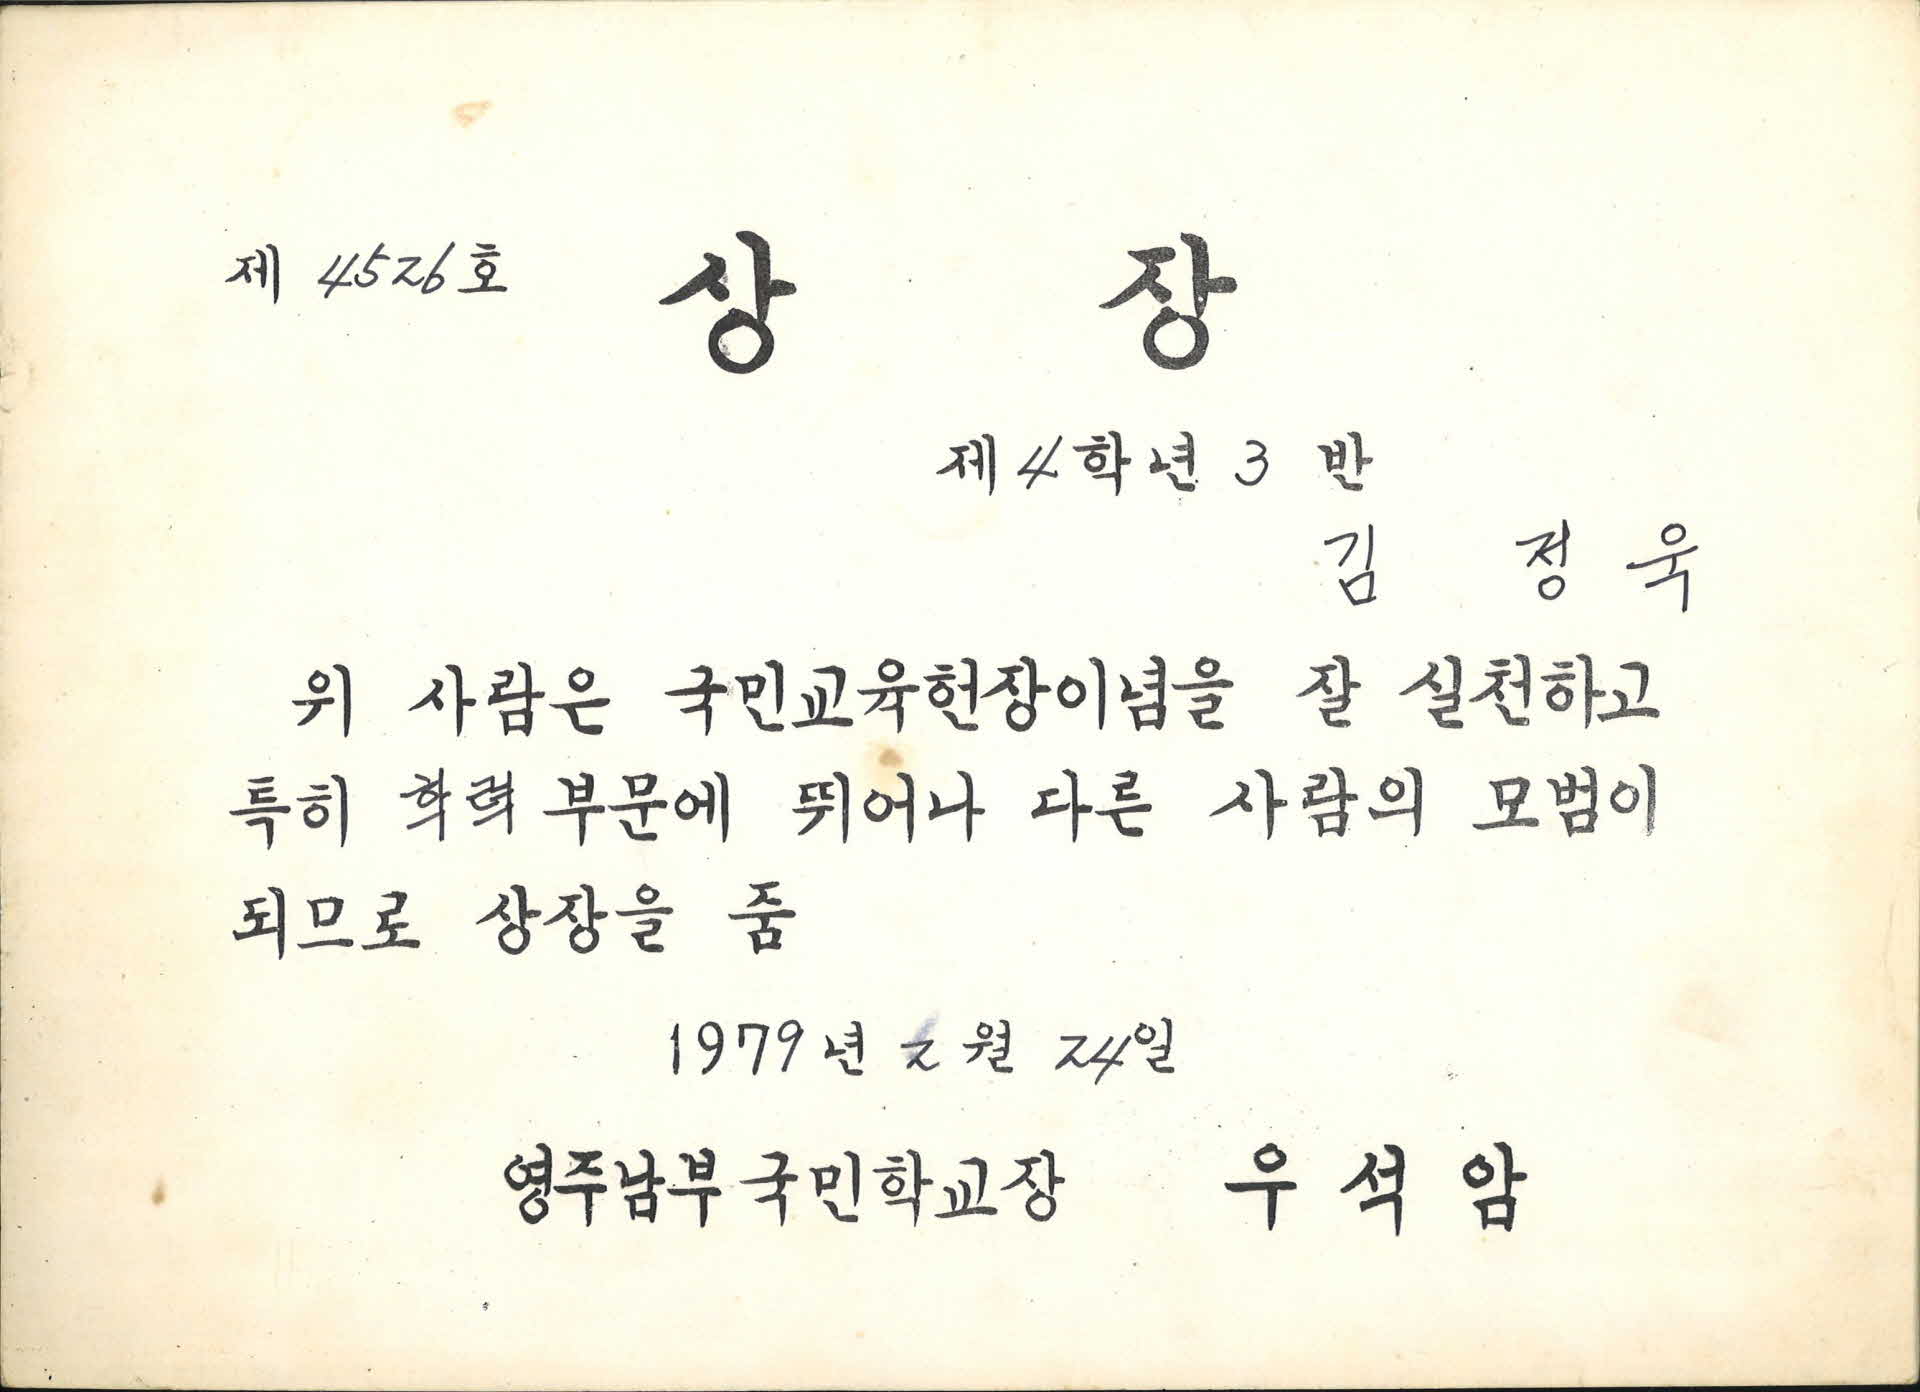 제 4526호
상 장
제4학년 3 반
김 정 욱
위 사람은 국민교육헌장이념을 잘 실천하고
특히 학력 부문에 뛰어나 다른 사람의 모범이
되므로 상장을 줌
1979년 2월 24일
영주남부국민학교장 우 석 암